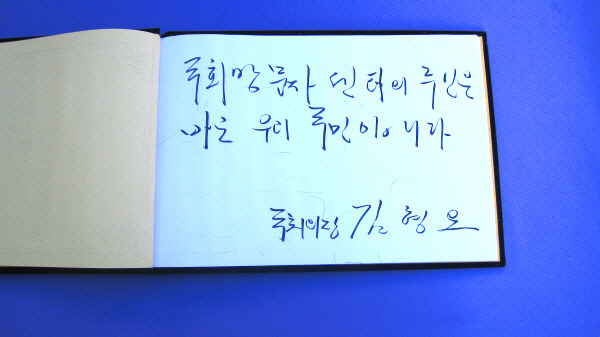 국회방문자 센터의 주인은
바로 우리 국민이에니다
국회의장 김형오